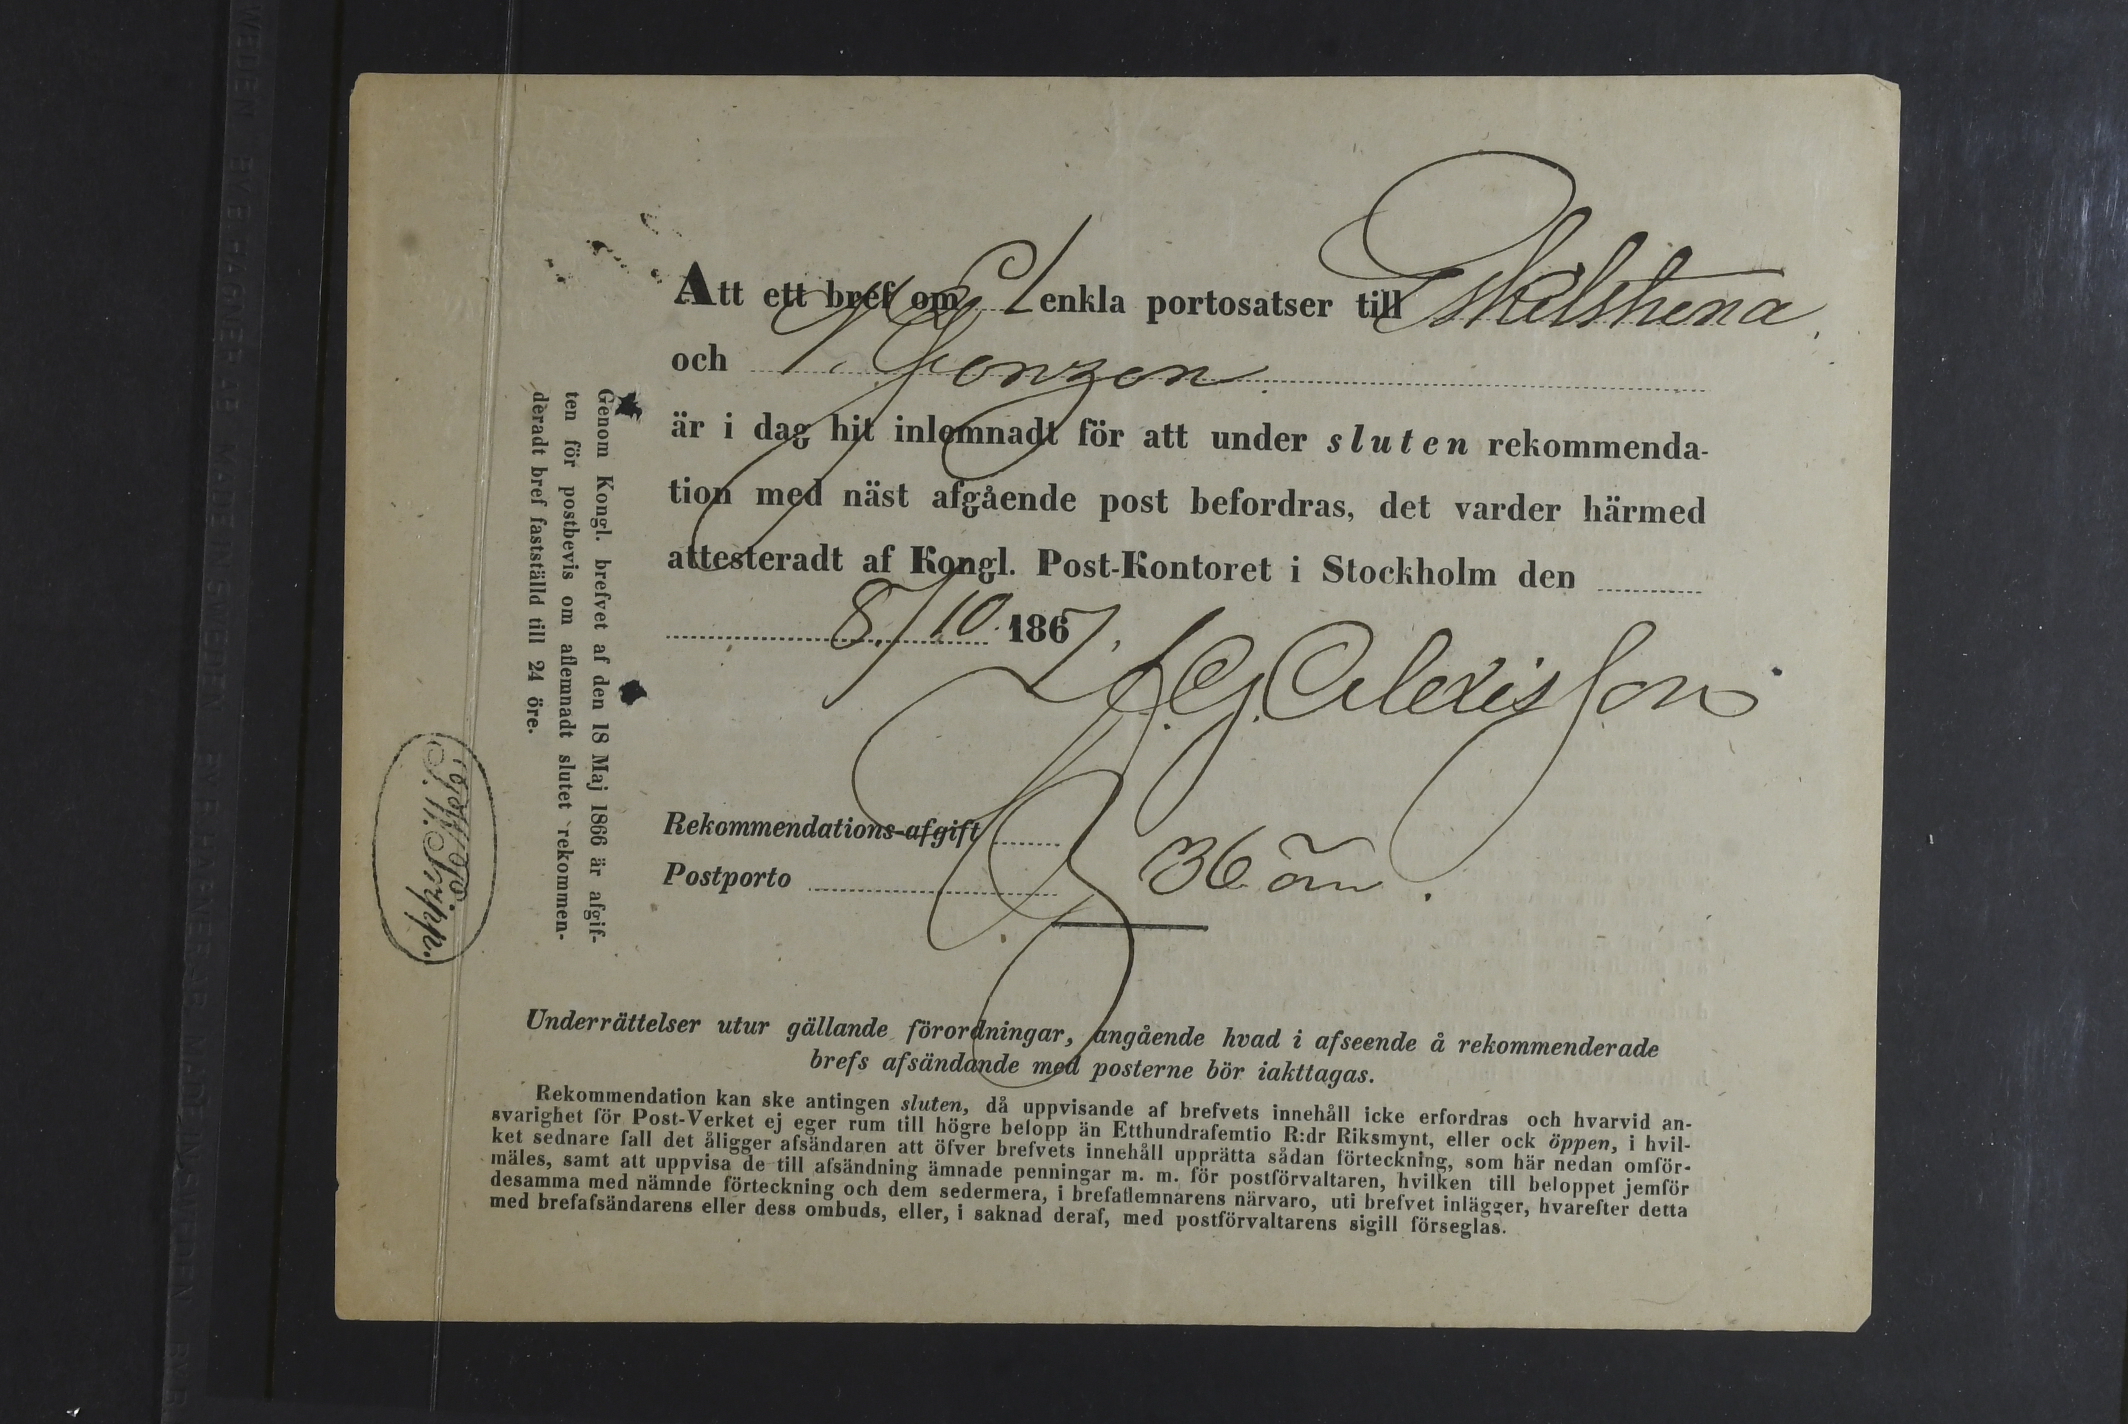 Att ett bref om 1 enkla portosatser till Eskilstuna
och
är i dag hit inlemnadt för att under sluten rekommenda-
tion med näst afgående post befordras, det varder härmed
attesteradt af Kongl. Post-Kontoret i Stockholm den
8/10 1867.
Alexisson
Rekommendations-afgift
Postporto 36 öre
Genom Kongl. brefvet af den 18 Maj 1866 är afgif-
ten för postbevis om aflemnadt slutet rekommen-
deradt bref fastställd till 24 öre.
Underrättelser utur gällande förordningar, angående hvad i afseende å rekommenderade
brefs afsändande med posterne bör iakttagas.
Rekommendation kan ske antingen sluten, då uppvisande af brefvets innehåll icke erfordras och hvarvid an-
svarighet för Post-Verket ej eger rum till högre belopp än Etthundrafemtio R:dr Riksmynt, eller ock öppen, i hvil-
ket sednare fall det åligger afsändaren att öfver brefvets innehåll upprätta sådan förteckning, som här nedan omför-
mäles, samt att uppvisa de till afsändning ämnade penningar m. m. för postförvaltaren, hvilken till beloppet jemför
desamma med nämnde förteckning och dem sedermera, i brefaflemnarens närvaro, uti brefvet inlägger, hvarefter detta
med brefafsändarens eller dess ombuds, eller, i saknad deraf, med postförvaltarens sigill förseglas.